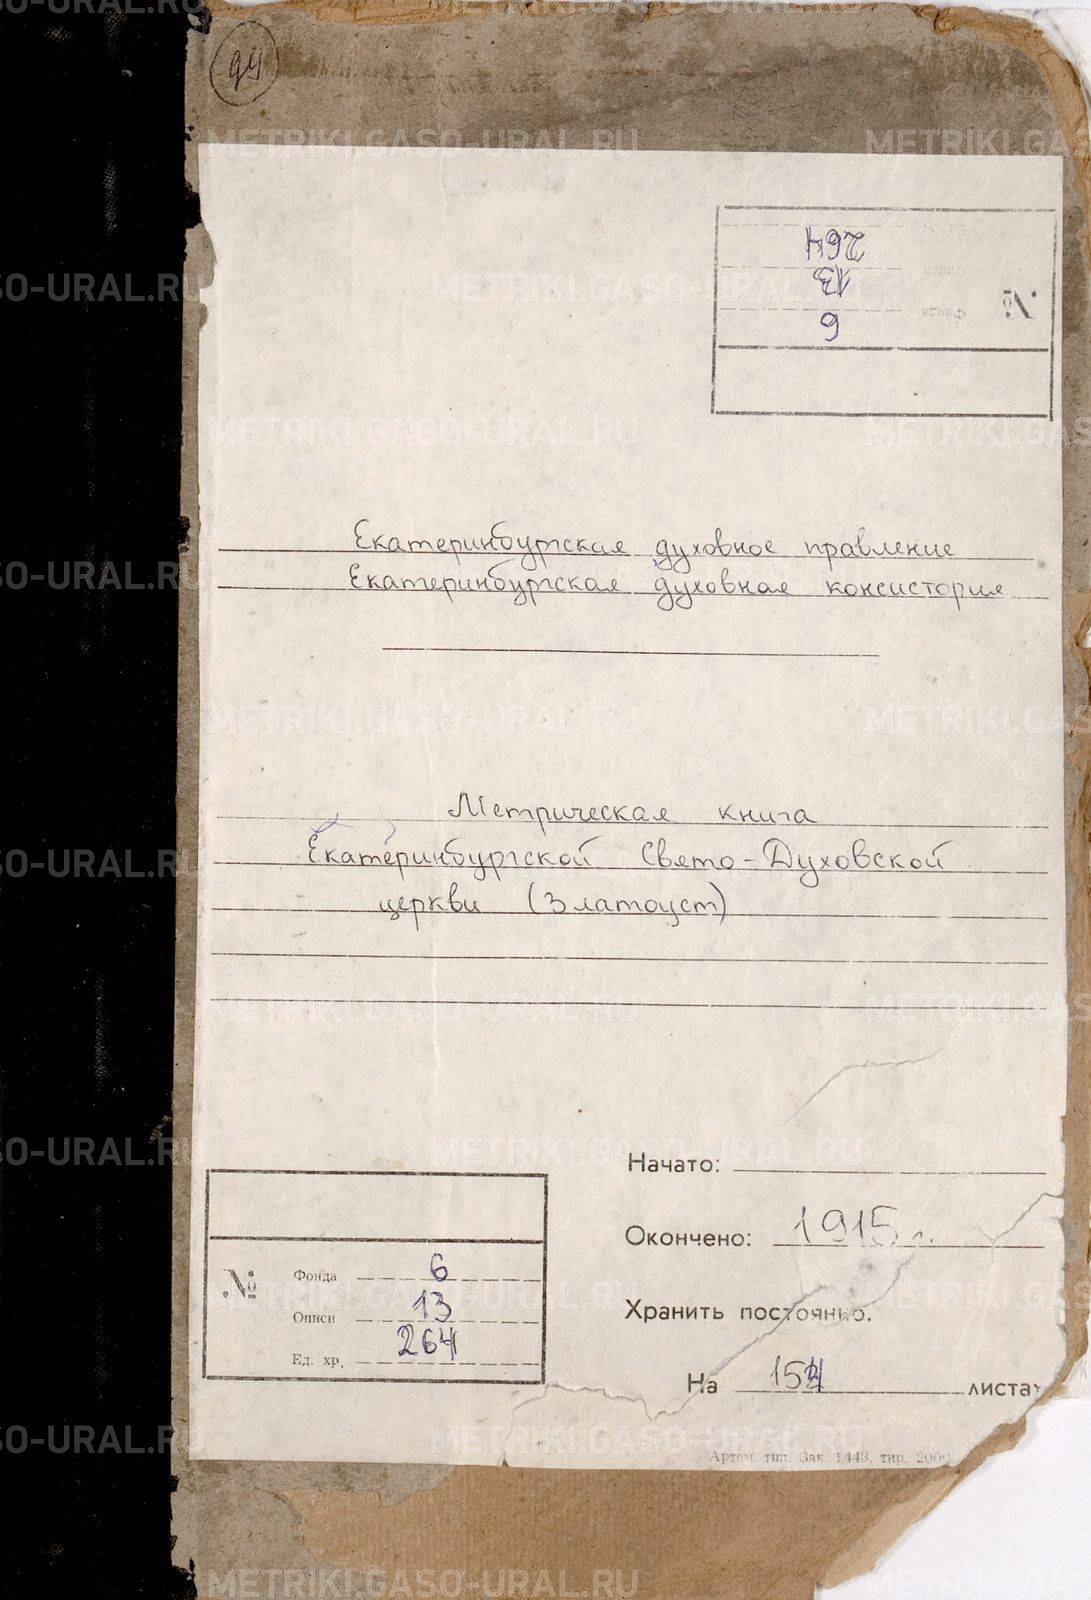 94
264
13
6
Фонда
№
Екатеринбургская духовное правление
Екатеринбургская духовная консистория
Метрическая книга
Екатеринбургской Свято-Духовской
церкви (Златоуст)
Начато:
Окончено: 1915 г.
Хранить постоянно.
На 154 листах
№
Фонда 6
Описи 13
Ед. хр. 264
Артем. тип. Зак. 1443. тир. 2000
METRIKI.GASO-URAL.RU